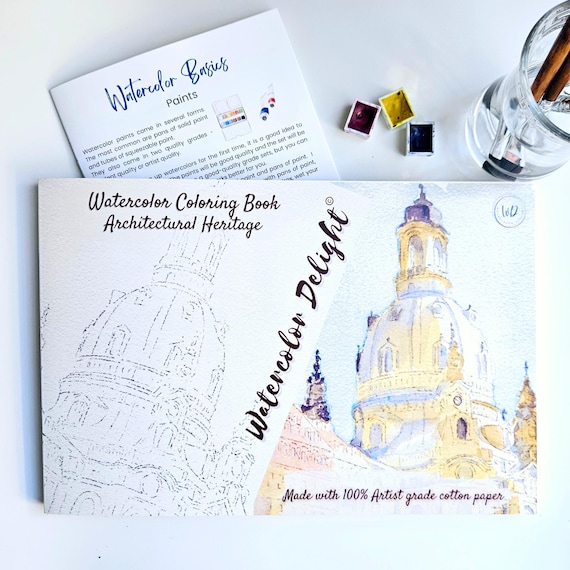 Watercolor Basics
Paints
Watercolor paints come in several forms.
The most common are pans of solid paint
and tubes of squeezable paint.
They also come in two quality grades -
quality or artist quality.
up watercolors for the first time, it is a good idea to
paints will be good quality and the set will be
a good-quality grade sets, but you can
better for you.
pans of paint and pans of paint.
wet your
Watercolor Coloring Book
Architectural Heritage
Watercolor Delight ©
WD
Made with 100% Artist grade cotton paper